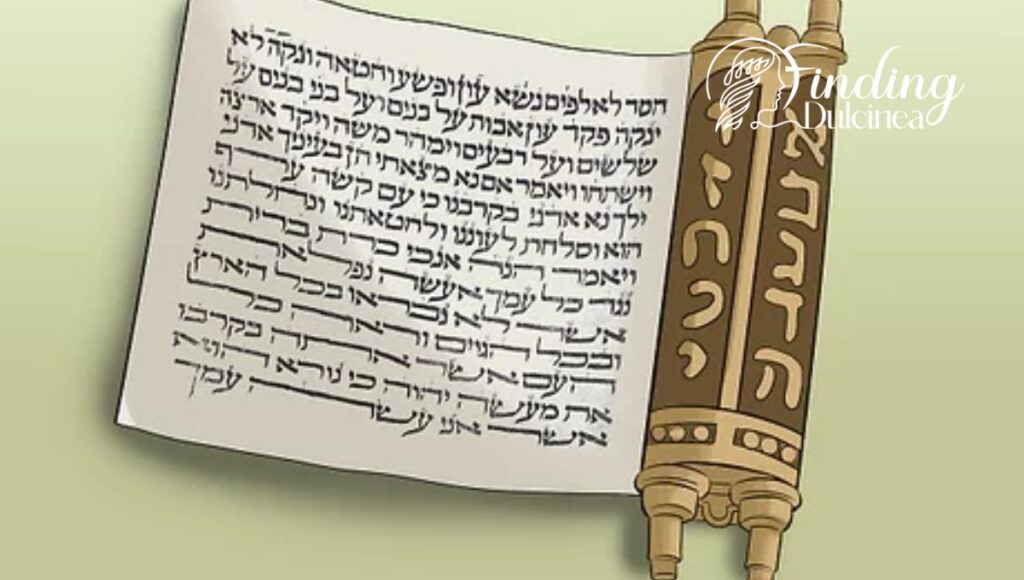 חסד לאלפים נשא עון ופשע וחטאה ונקה לא
ינקה פקד עון אבות על בנים ועל בני בנים על
שלשים ועל רבעים וימהר משה ויקד ארצה
וישתחו ויאמר אם נא מצאתי חן בעיניך אדני
ילך נא אדני בקרבנו כי עם קשה ערף
הוא וסלחת לעוננו ולחטאתנו ונחלתנו
ויאמר הנה אנכי כרת ברית
נגד כל עמך אעשה נפלאת
אשר לא נבראו בכל הארץ
ובכל הגוים וראה כל
העם אשר אתה בקרבו
את מעשה יהוה כי נורא הוא
אשר אני עשה עמך
Finding
Dulcinea